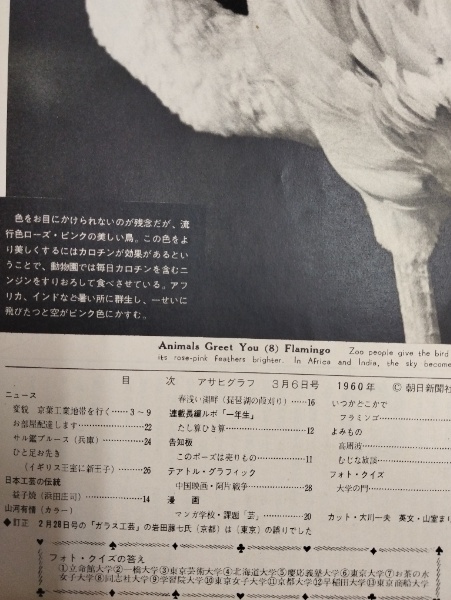 色をお目にかけられないのが残念だが、流
行色ローズ・ピンクの美しい鳥。この色をよ
り美しくするにはカロチンが効果があるとい
うことで、動物園では毎日カロチンを含むニ
ンジンをすりおろして食べさせている。アフ
リカ、インドなど暑い所に群生し、一せいに
飛びたつと空がピンク色にかすむ。
Animals Greet You (8) Flamingo Zoo people give the bird
its rose-pink feathers brighter. In Africa and India, the sky become
目 次 アサヒグラフ 3月6日号 1960年 © 朝日新聞社
ニュース
変貌 京葉工業地帯を行く……3~9
お部屋配達します……22
サル鑑ブルース(兵庫)……24
ひと足お先き
(イギリス王室に新王子)……26
日本工芸の伝統
益子焼(浜田庄司)……14
山河有情(カラー)
春浅い湖畔(琵琶湖の葭刈り)……16
連載長編ルポ「一年生」
たし算ひき算……12
告知板
このポーズは売りもの……11
テアトル・グラフィック
中国映画・阿片戦争……28
漫画
マンガ学校・課題「芸」……20
いつかどこかで
フラミンゴ
よみもの
高周波
むじな放談
フォト・クイズ
大学の門
カット・大川一夫 英文・山室まり
◆訂正 2月28日号の「ガラス工芸」の岩田藤七氏(京都)は(東京)の誤りでした
フォト・クイズの答え
①立命館大学②一橋大学③東京芸術大学④北海道大学⑤慶応義塾大学⑥東京大学⑦お茶の水
女子大学⑧同志社大学⑨学習院大学⑩東京女子大学⑪京都大学⑫早稲田大学⑬東京商船大学